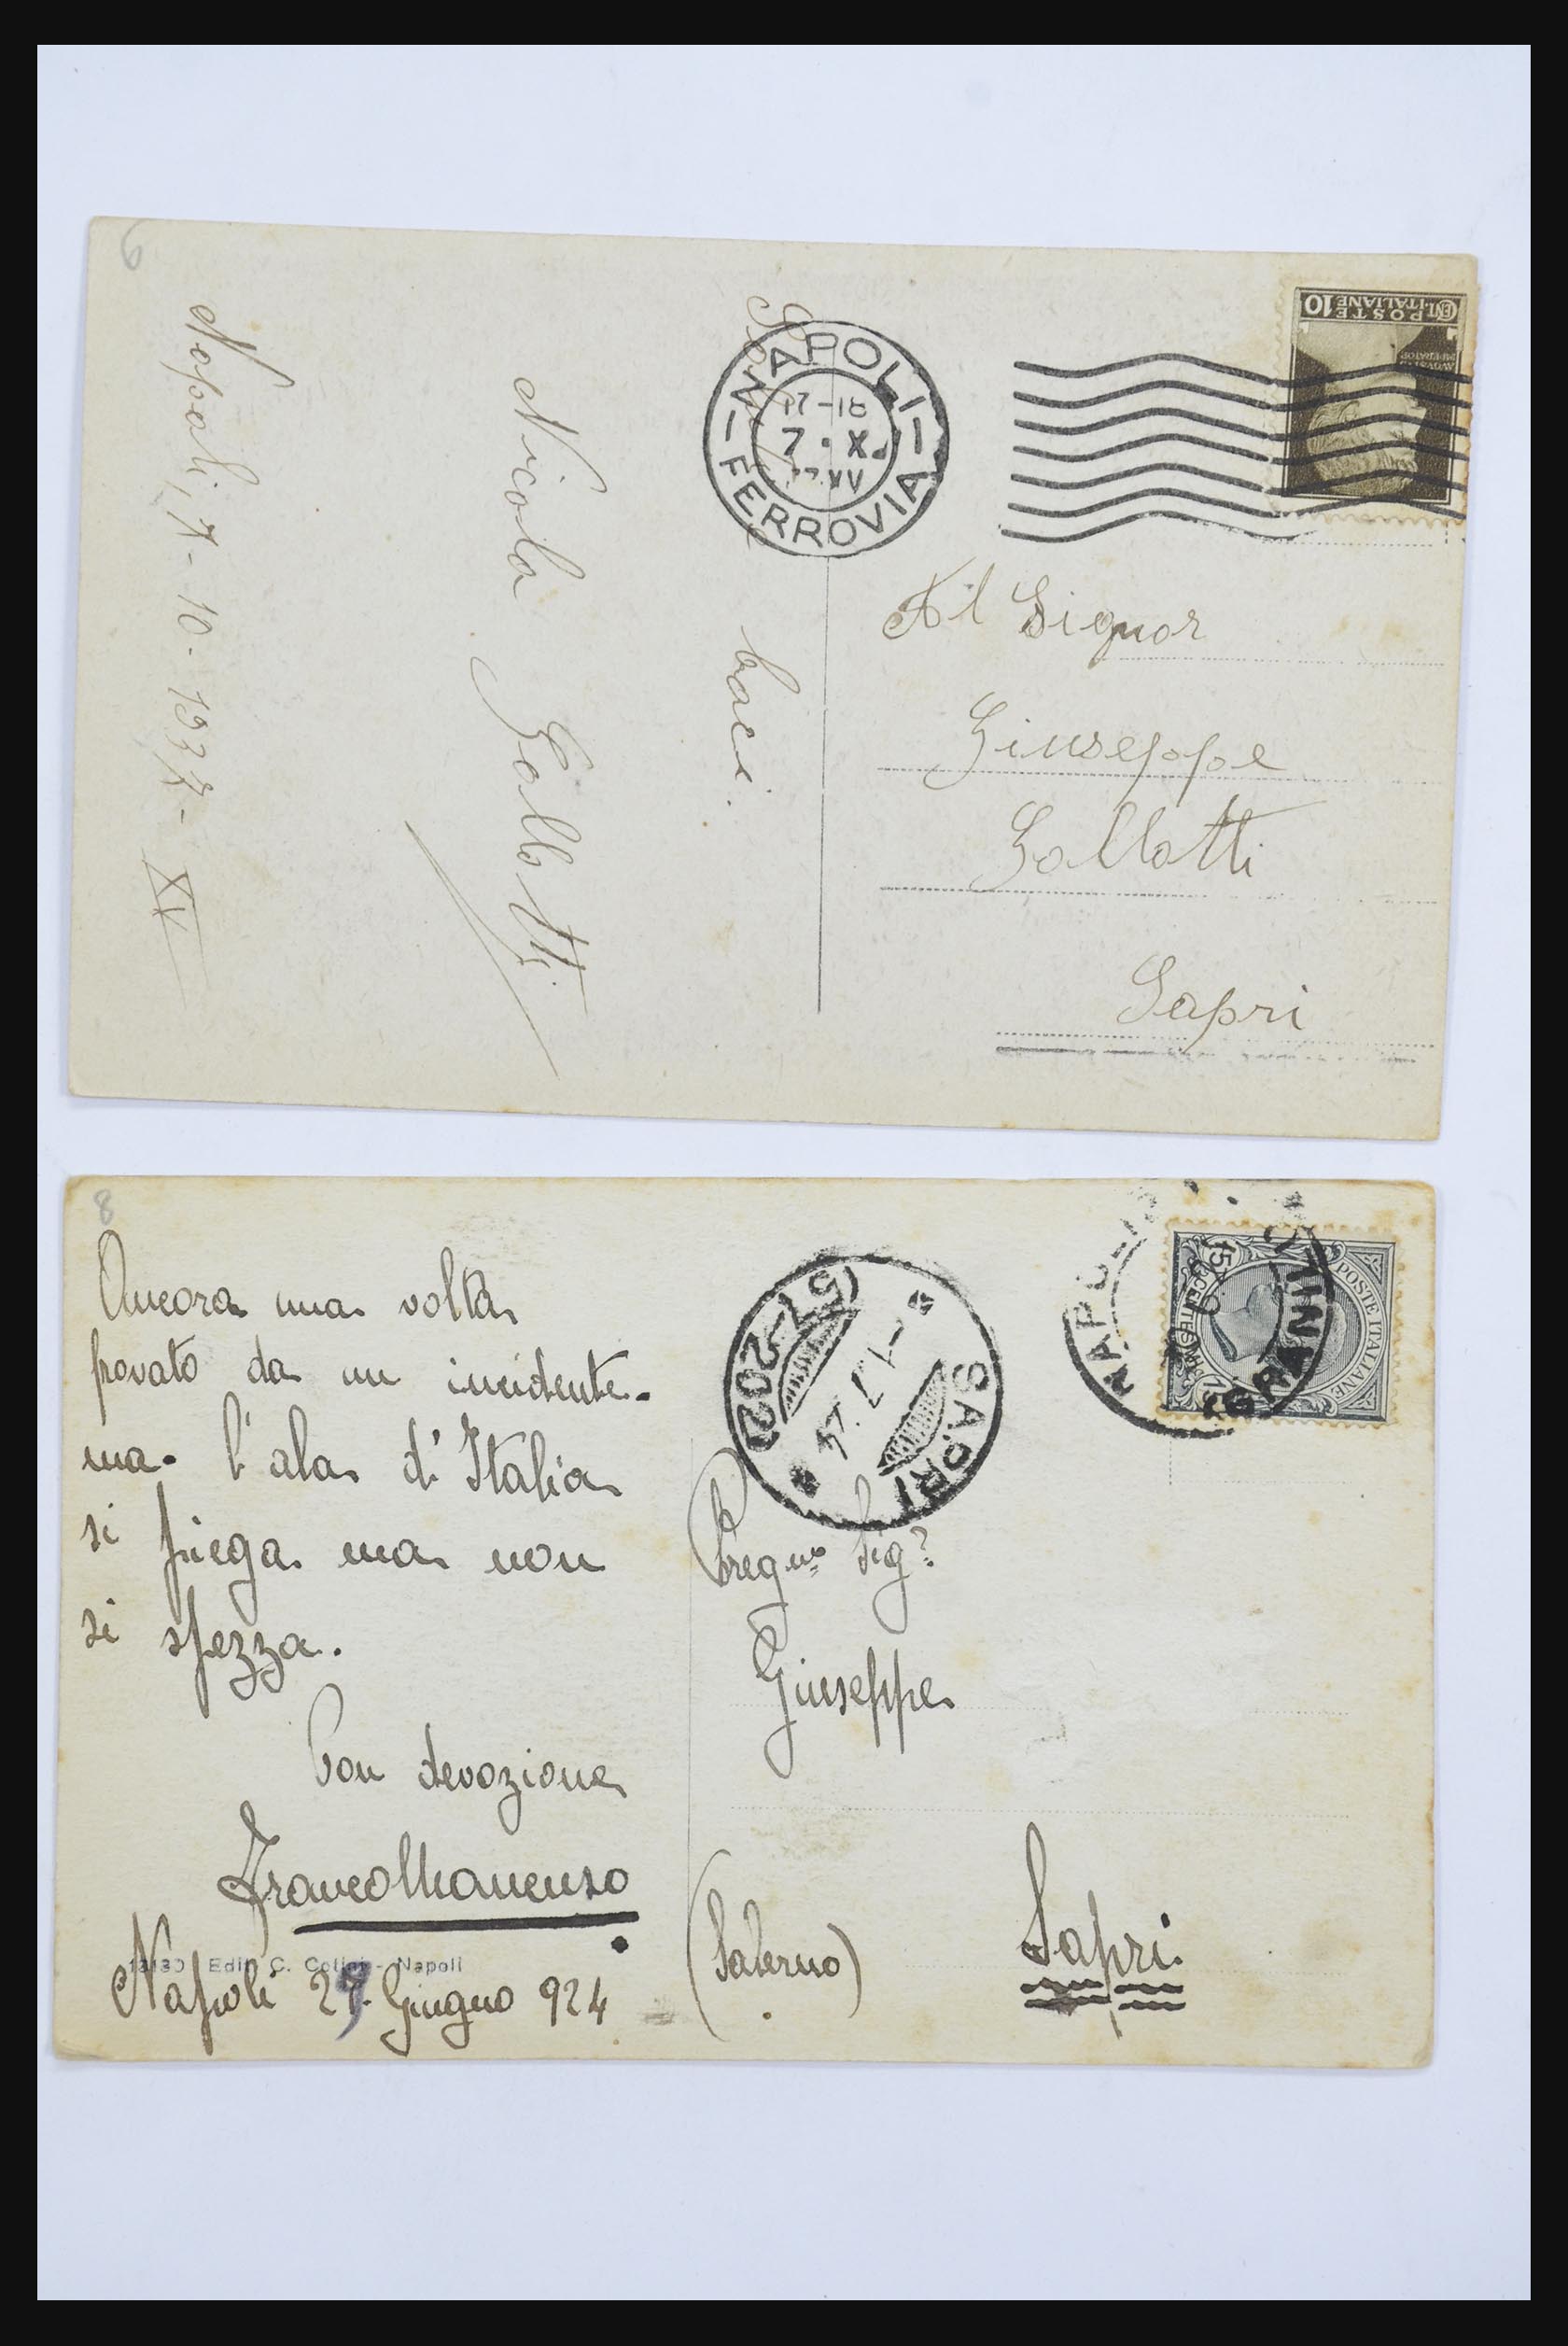 6
baci.
Nicola Gallotti
Napoli, 7-10-1937-XV
NAPOLI
FERROVIA
17-18
7 · X
XV
POSTE ITALIANE
CENT. 10
Al Signor
Giuseppe
Gallotti
Sapri
8
Ancora una volta
provato da un incidente.
ma. l'ala d'Italia
si piega ma non
si spezza.
Con devozione
13130 Edit. C. Cotini - Napoli
Napoli 29 Giugno 924
SAPRI
(57-202)
-1.7.24
POSTE ITALIANE
15 CENTESIMI 15
Preg.mo Sig.
Giuseppe
Sapri.
(Salerno)